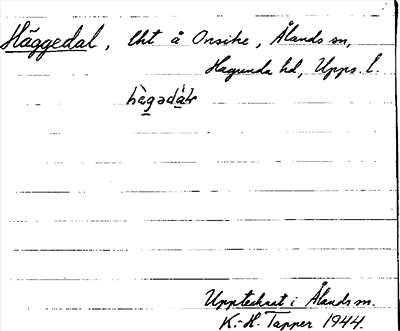 Häggedal, lht å Onsike, Ålands sn,
Hagunda hd, Upps. l.
Upptecknat i Ålands sn.
K.-H. Tapper 1944.